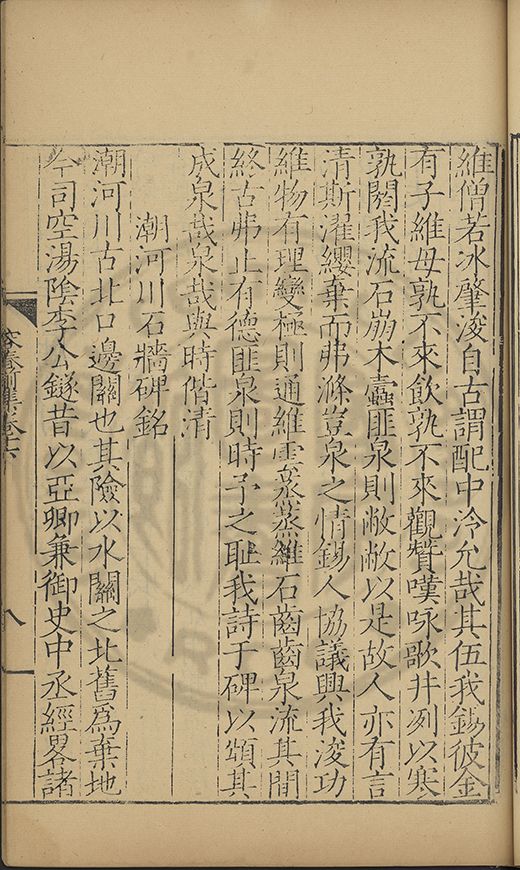 維僧若冰肇浚自古謂配中泠允哉其伍我錫彼金
有子維母孰不來飲孰不來觀贊嘆咏歌井冽以寒
孰閼我流石崩木蠹匪泉則敝敝以是故人亦有言
清斯濯纓棄而弗滌豈泉之情錫人協議興我浚功
維物有理變極則通維雲蒸蒸維石齒齒泉流其間
終古弗止有德匪泉則時予之耻我詩于碑以頌其
成泉哉泉哉與時偕清
潮河川石牆碑銘
潮河川古北口邊關也其險以水關之北舊爲棄地
今司空湯陰李公鐩昔以亞卿兼御史中丞經畧諸
容春前集卷十六
八